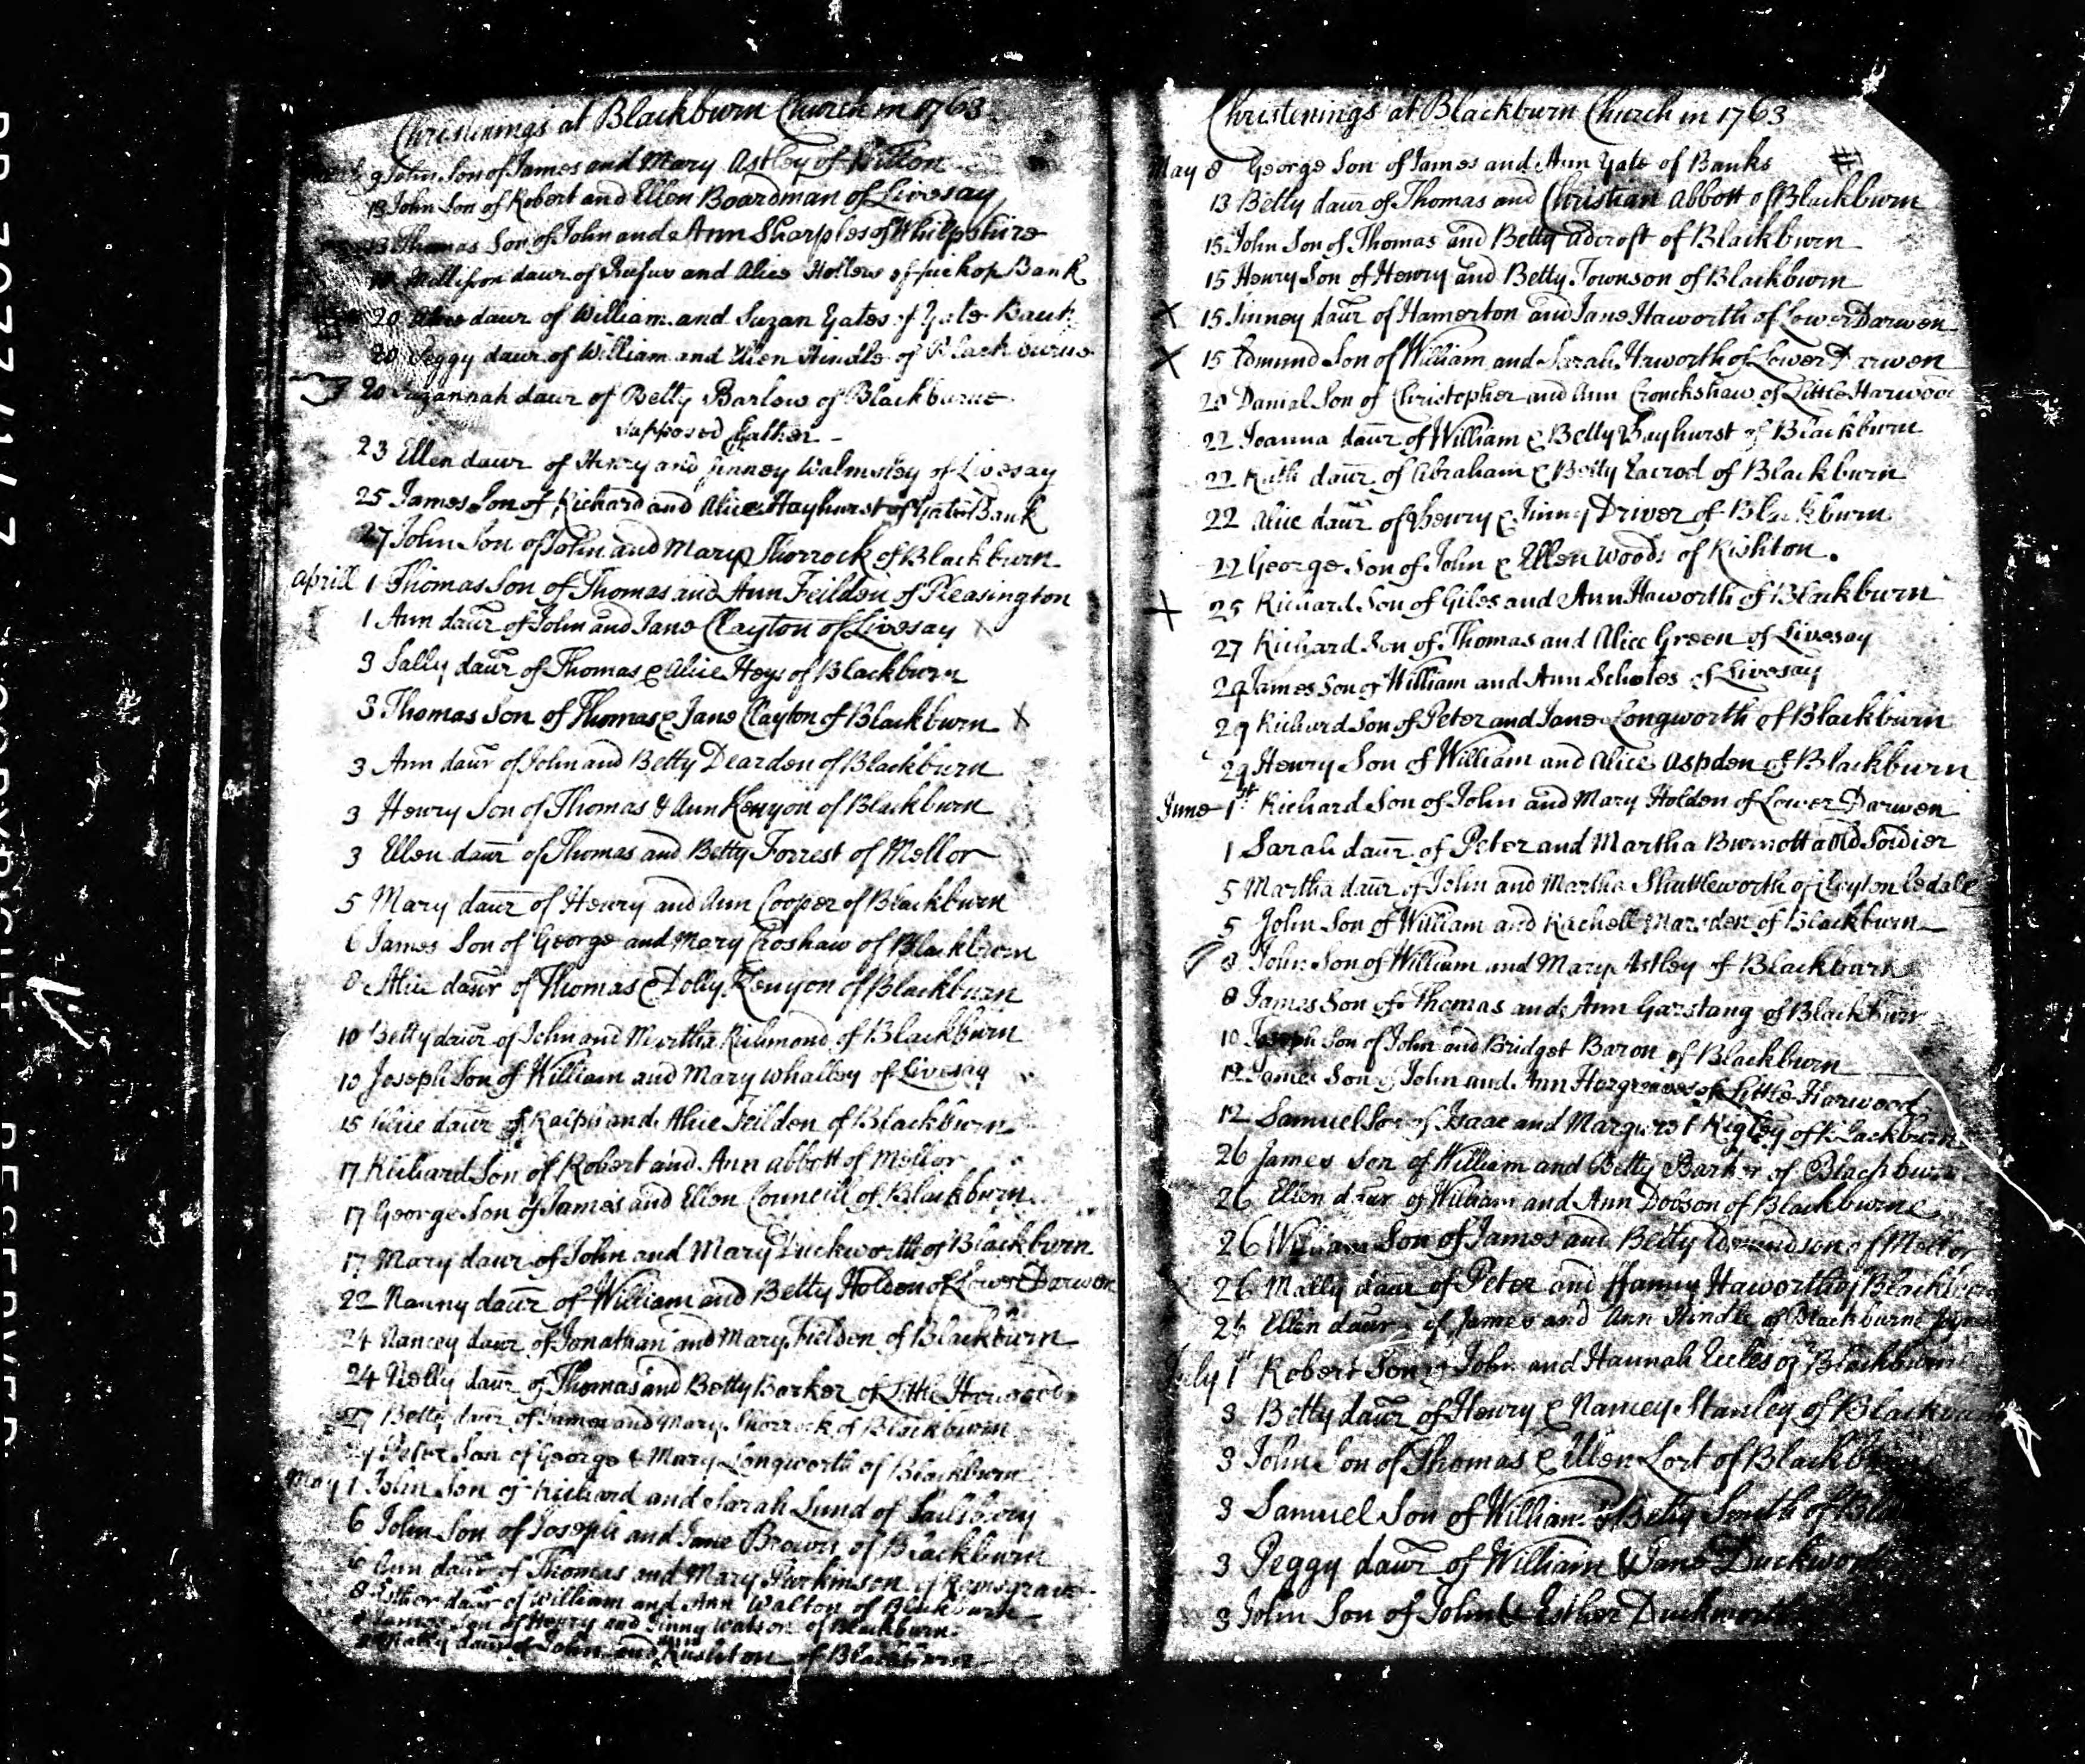 Christenings at Blackburn Church in 1763
9 John Son of James and Mary Astley of Witton
13 John Son of Robert and Ellen Boardman of Livesay
13 Thomas Son of John and Ann Sharples of Whilpshire
daur of Rufus and Alice Hollows of Bank
20 Alice daur of William and Suzan Yates of Yate Bank
20 Peggy daur of William and Ellen Hindle of Blackburne
20 Suzannah daur of Betty Barlow of Blackburne
supposed Father
23 Ellen daur of Henry and Jinney Walmsley of Livesay
25 James Son of Richard and Alice Hayhurst of Yate Bank
27 John Son of John and Mary Shorrock of Blackburn
Aprill 1 Thomas Son of Thomas and Ann Feilden of Pleasington
1 Ann daur of John and Jane Clayton of Livesay
3 Sally daur of Thomas & Alice Heys of Blackburn
3 Thomas Son of Thomas & Jane Clayton of Blackburn X
3 Ann daur of John and Betty Dearden of Blackburn
3 Henry Son of Thomas & Ann Kenyon of Blackburn
3 Ellen daur of Thomas and Betty Forrest of Mellor
5 Mary daur of Henry and Ann Cooper of Blackburn
6 James Son of George and Mary Croshaw of Blackburn
8 Alice daur of Thomas & Dolly Kenyon of Blackburn
10 Betty daur of John and Martha Richmond of Blackburn
10 Joseph Son of William and Mary Whalley of Livesay
15 Alice daur of Ralph and Alice Feilden of Blackburn
17 Richard Son of Robert and Ann Abbott of Mellor
17 George Son of James and Ellen Councill of Blackburn
17 Mary daur of John and Mary Duckworth of Blackburn
22 Nanny daur of William and Betty Holden of Lower Darwen
24 Nancey daur of Jonathan and Mary Fielden of Blackburn
24 Nelly daur of Thomas and Betty Barker of Little Harwood
27 Betty daur of James and Mary Shorrock of Blackburn
Peter Son of George & Mary Longworth of Blackburn
May 1 John Son of Richard and Sarah Lund of Sailsbury
6 John Son of Joseph and Jane Brown of Blackburn
Ann daur of Thomas and Mary Parkinson of Ramsgrave
8 Esther daur of William and Ann Walton of Blackburn
James Son of Henry and Jinny Watson of Blackburn
Mally daur of John and Ann Rushton of Blackburn
Christenings at Blackburn Church in 1763
May 8 George Son of James and Ann Yate of Banks #
13 Betty daur of Thomas and Christian Abbott of Blackburn
15 John Son of Thomas and Betty Adcroft of Blackburn
15 Henry Son of Henry and Betty Townson of Blackburn
X 15 Jinney daur of Hamerton and Jane Haworth of Lower Darwen
X 15 Edmund Son of William and Sarah Haworth of Lower Darwen
20 Danial Son of Christopher and Ann Cronckshaw of Little Harwood
22 Joanna daur of William & Betty Bayhurst of Blackburn
22 Ruth daur of Abraham & Betty of Blackburn
22 Alice daur of Henry & Jinny Driver of Blackburn
22 George Son of John & Ellen Woods of Rishton
X 25 Richard Son of Giles and Ann Haworth of Blackburn
27 Richard Son of Thomas and Alice Green of Livesay
29 James Son of William and Ann Scholes of Livesay
29 Richard Son of Peter and Jane Longworth of Blackburn
29 Henry Son of William and Alice Aspden of Blackburn
June 1st Richard Son of John and Mary Holden of Lower Darwen
1 Sarah daur of Peter and Martha Burnott a Old Soldier
5 Martha daur of John and Martha Shuttleworth of Clayton le dale
5 John Son of William and Rachell Marsden of Blackburn
8 John Son of William and Mary Astley of Blackburn
8 James Son of Thomas and Ann Garstang of Blackburn
10 Joseph Son of John and Bridget Baron of Blackburn
12 James Son of John and Ann Hargreaves of Little Harwood
12 Samuel Son of Isaac and Margurst Rigley of Blackburn
26 James Son of William and Betty Barker of Blackburn
26 Ellen daur of William and Ann Dobson of Blackburne
26 William Son of James and Betty Edmundson of Mellor
26 Mally daur of Peter and Hanny Haworth of Blackburn
26 Ellen daur of James and Ann Hindle of Blackburne
July 1st Robert Son of John and Hannah Eccles of Blackburn
3 Betty daur of Henry & Nancey Stanley of Blackburn
3 John Son of Thomas & Ellen Lort of Blackburn
3 Samuel Son of William & Betty Smith of
3 Peggy daur of William & Jane Duckworth
3 John Son of John & Esther Duckworth